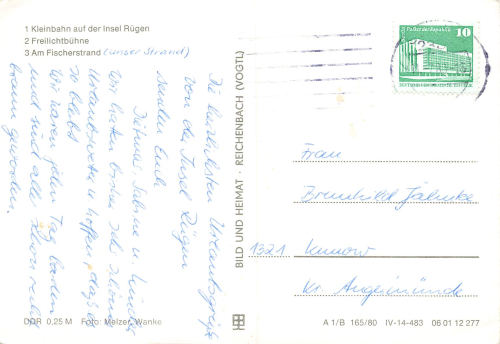 1 Kleinbahn auf der Insel Rügen
2 Freilichtbühne
3 Am Fischerstrand (unser Strand)
Die herzlichsten Urlaubsgrüße
von der Insel Rügen
senden Euch
Sabine u.
Wir haben bisher
Urlaubswetter u. hoffen, daß es
so bleibt.
Wir waren jeden Tag baden
und sind alle schon
braun geworden.
BILD UND HEIMAT · REICHENBACH (VOGTL)
Palast der Republik 10
DEUTSCHE DEMOKRATISCHE REPUBLIK
Frau
Brunhild
1321 Kunow
Kr. Angermünde
DDR 0,25 M Foto: Melzer, Wanke
A 1/B 165/80 IV-14-483 06 01 12 277